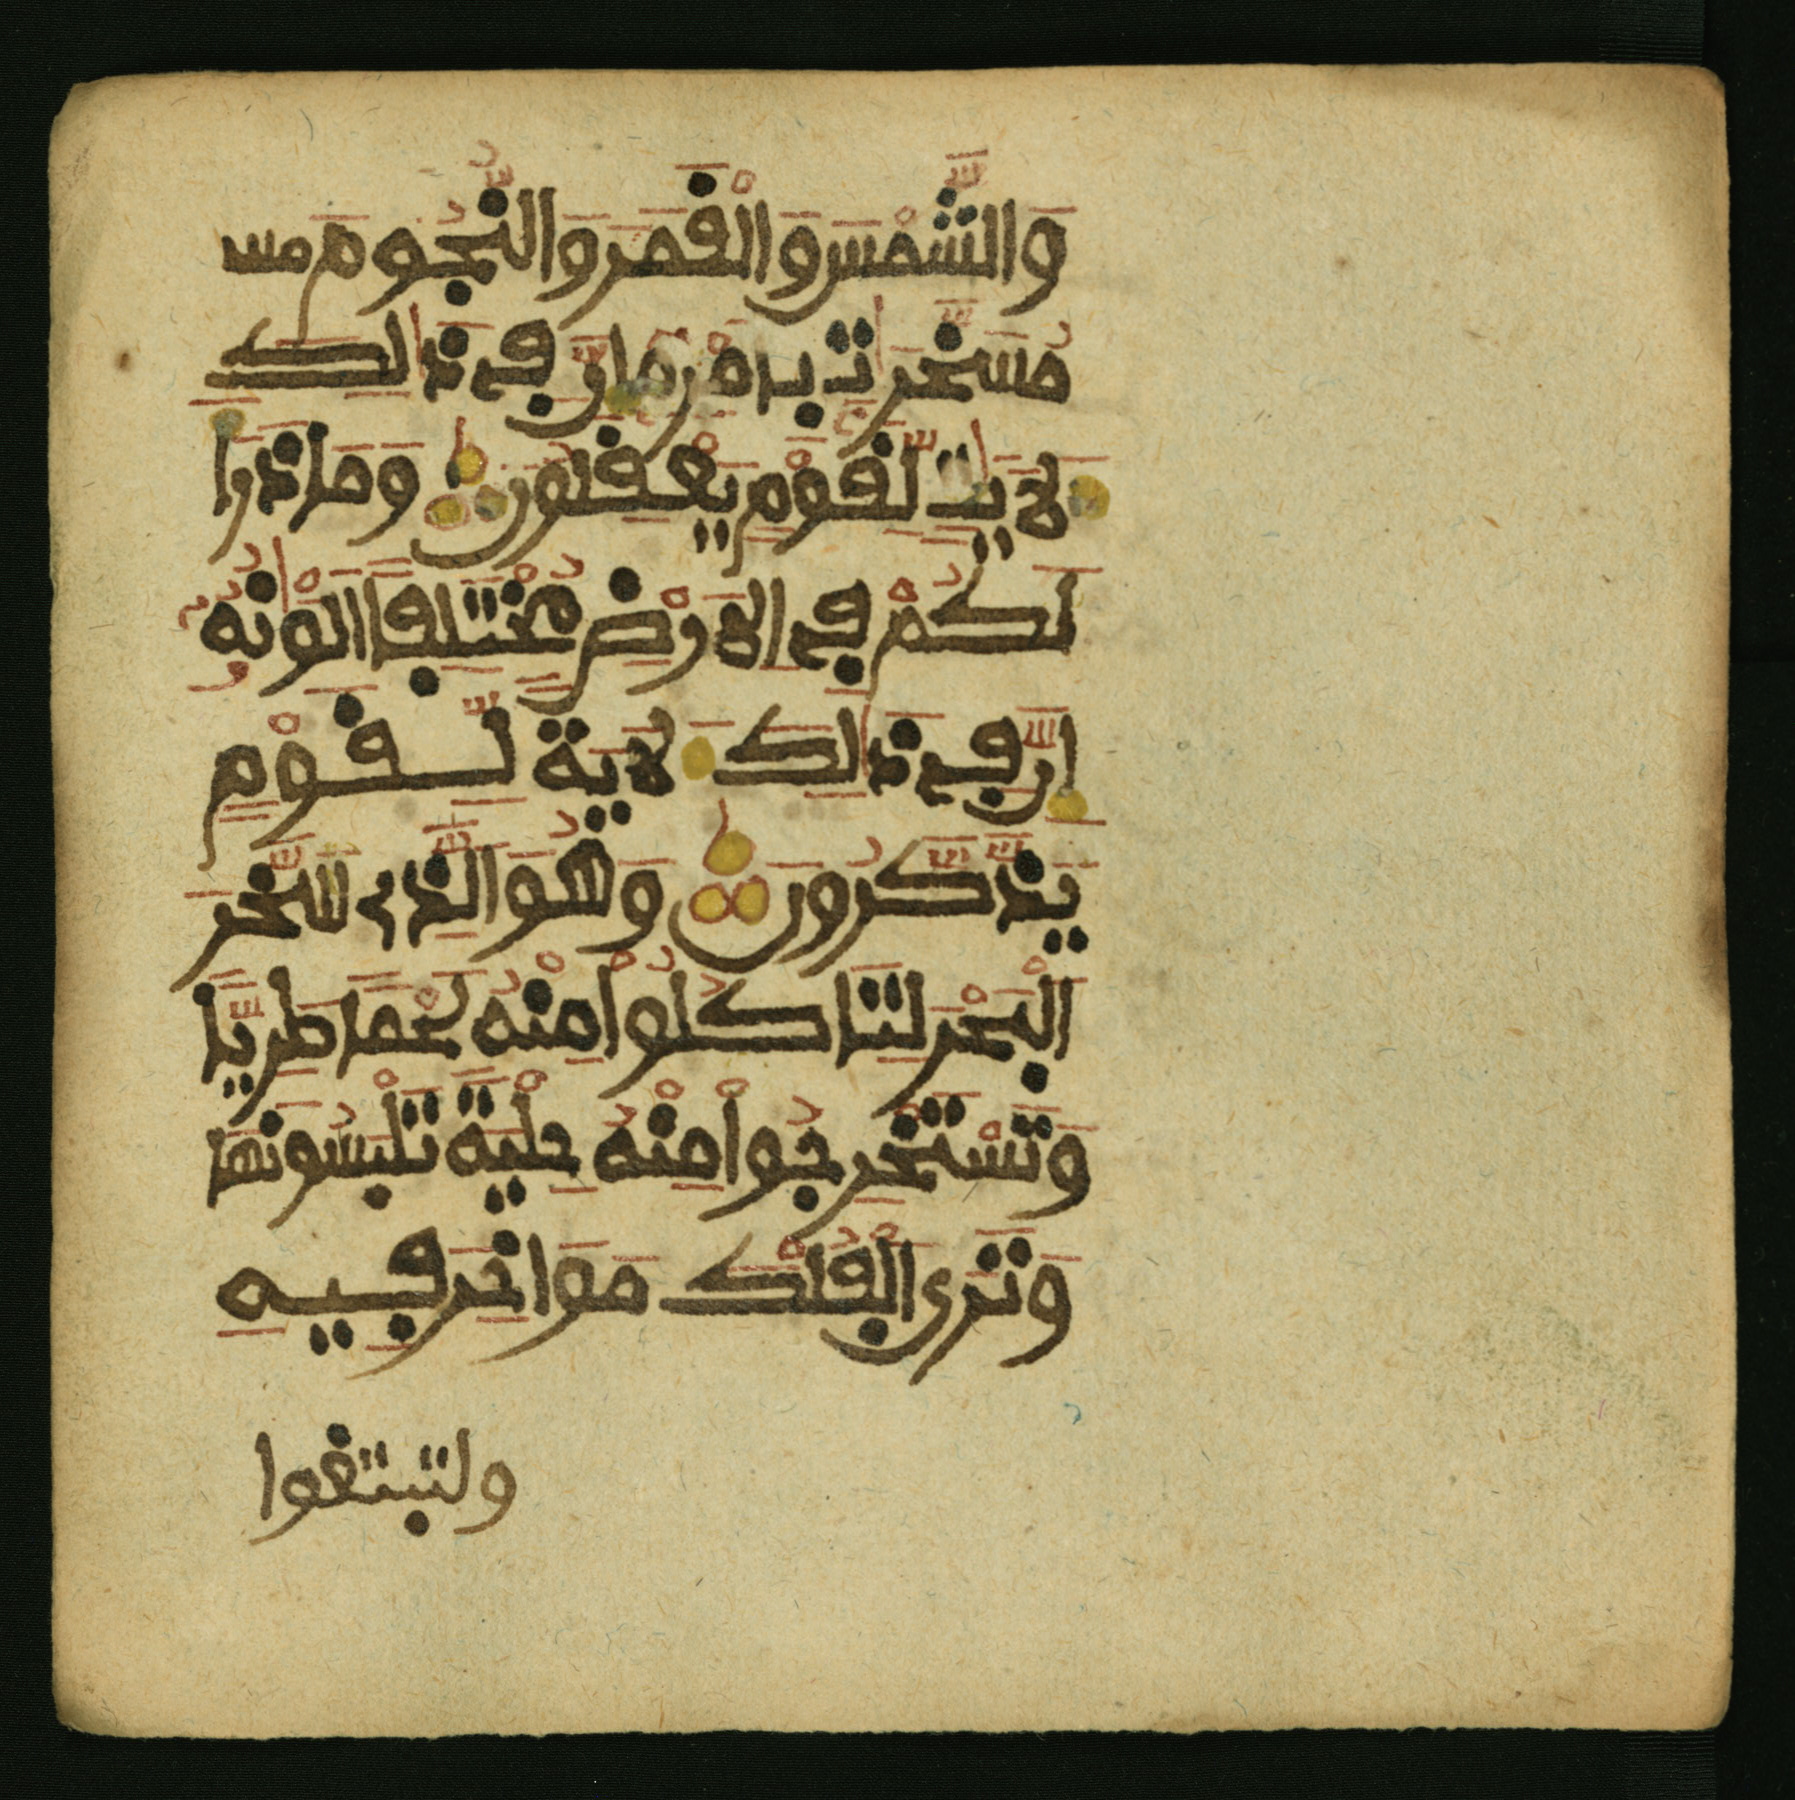 وَالشَّمْسَ وَالْقَمَرَ وَالنُّجُومَ مس
مُسَخَّرَٰتٍ بِأَمْرِهِ إِنَّ فِي ذَٰلِكَ
لَأَيَٰتٍ لِّقَوْمٍ يَعْقِلُونَ وَمَا ذَرَأَ
لَكُمْ فِي الْأَرْضِ مُخْتَلِفًا أَلْوَٰنُهُ
إِنَّ فِي ذَٰلِكَ لَأَيَةً لِّقَوْمٍ
يَذَّكَّرُونَ وَهُوَ الَّذِي سَخَّرَ
الْبَحْرَ لِتَاكُلُوا مِنْهُ لَحْمًا طَرِيًّا
وَتَسْتَخْرِجُوا مِنْهُ حِلْيَةً تَلْبَسُونَهَا
وَتَرَى الْفُلْكَ مَوَاخِرَ فِيهِ
ولتبتغوا